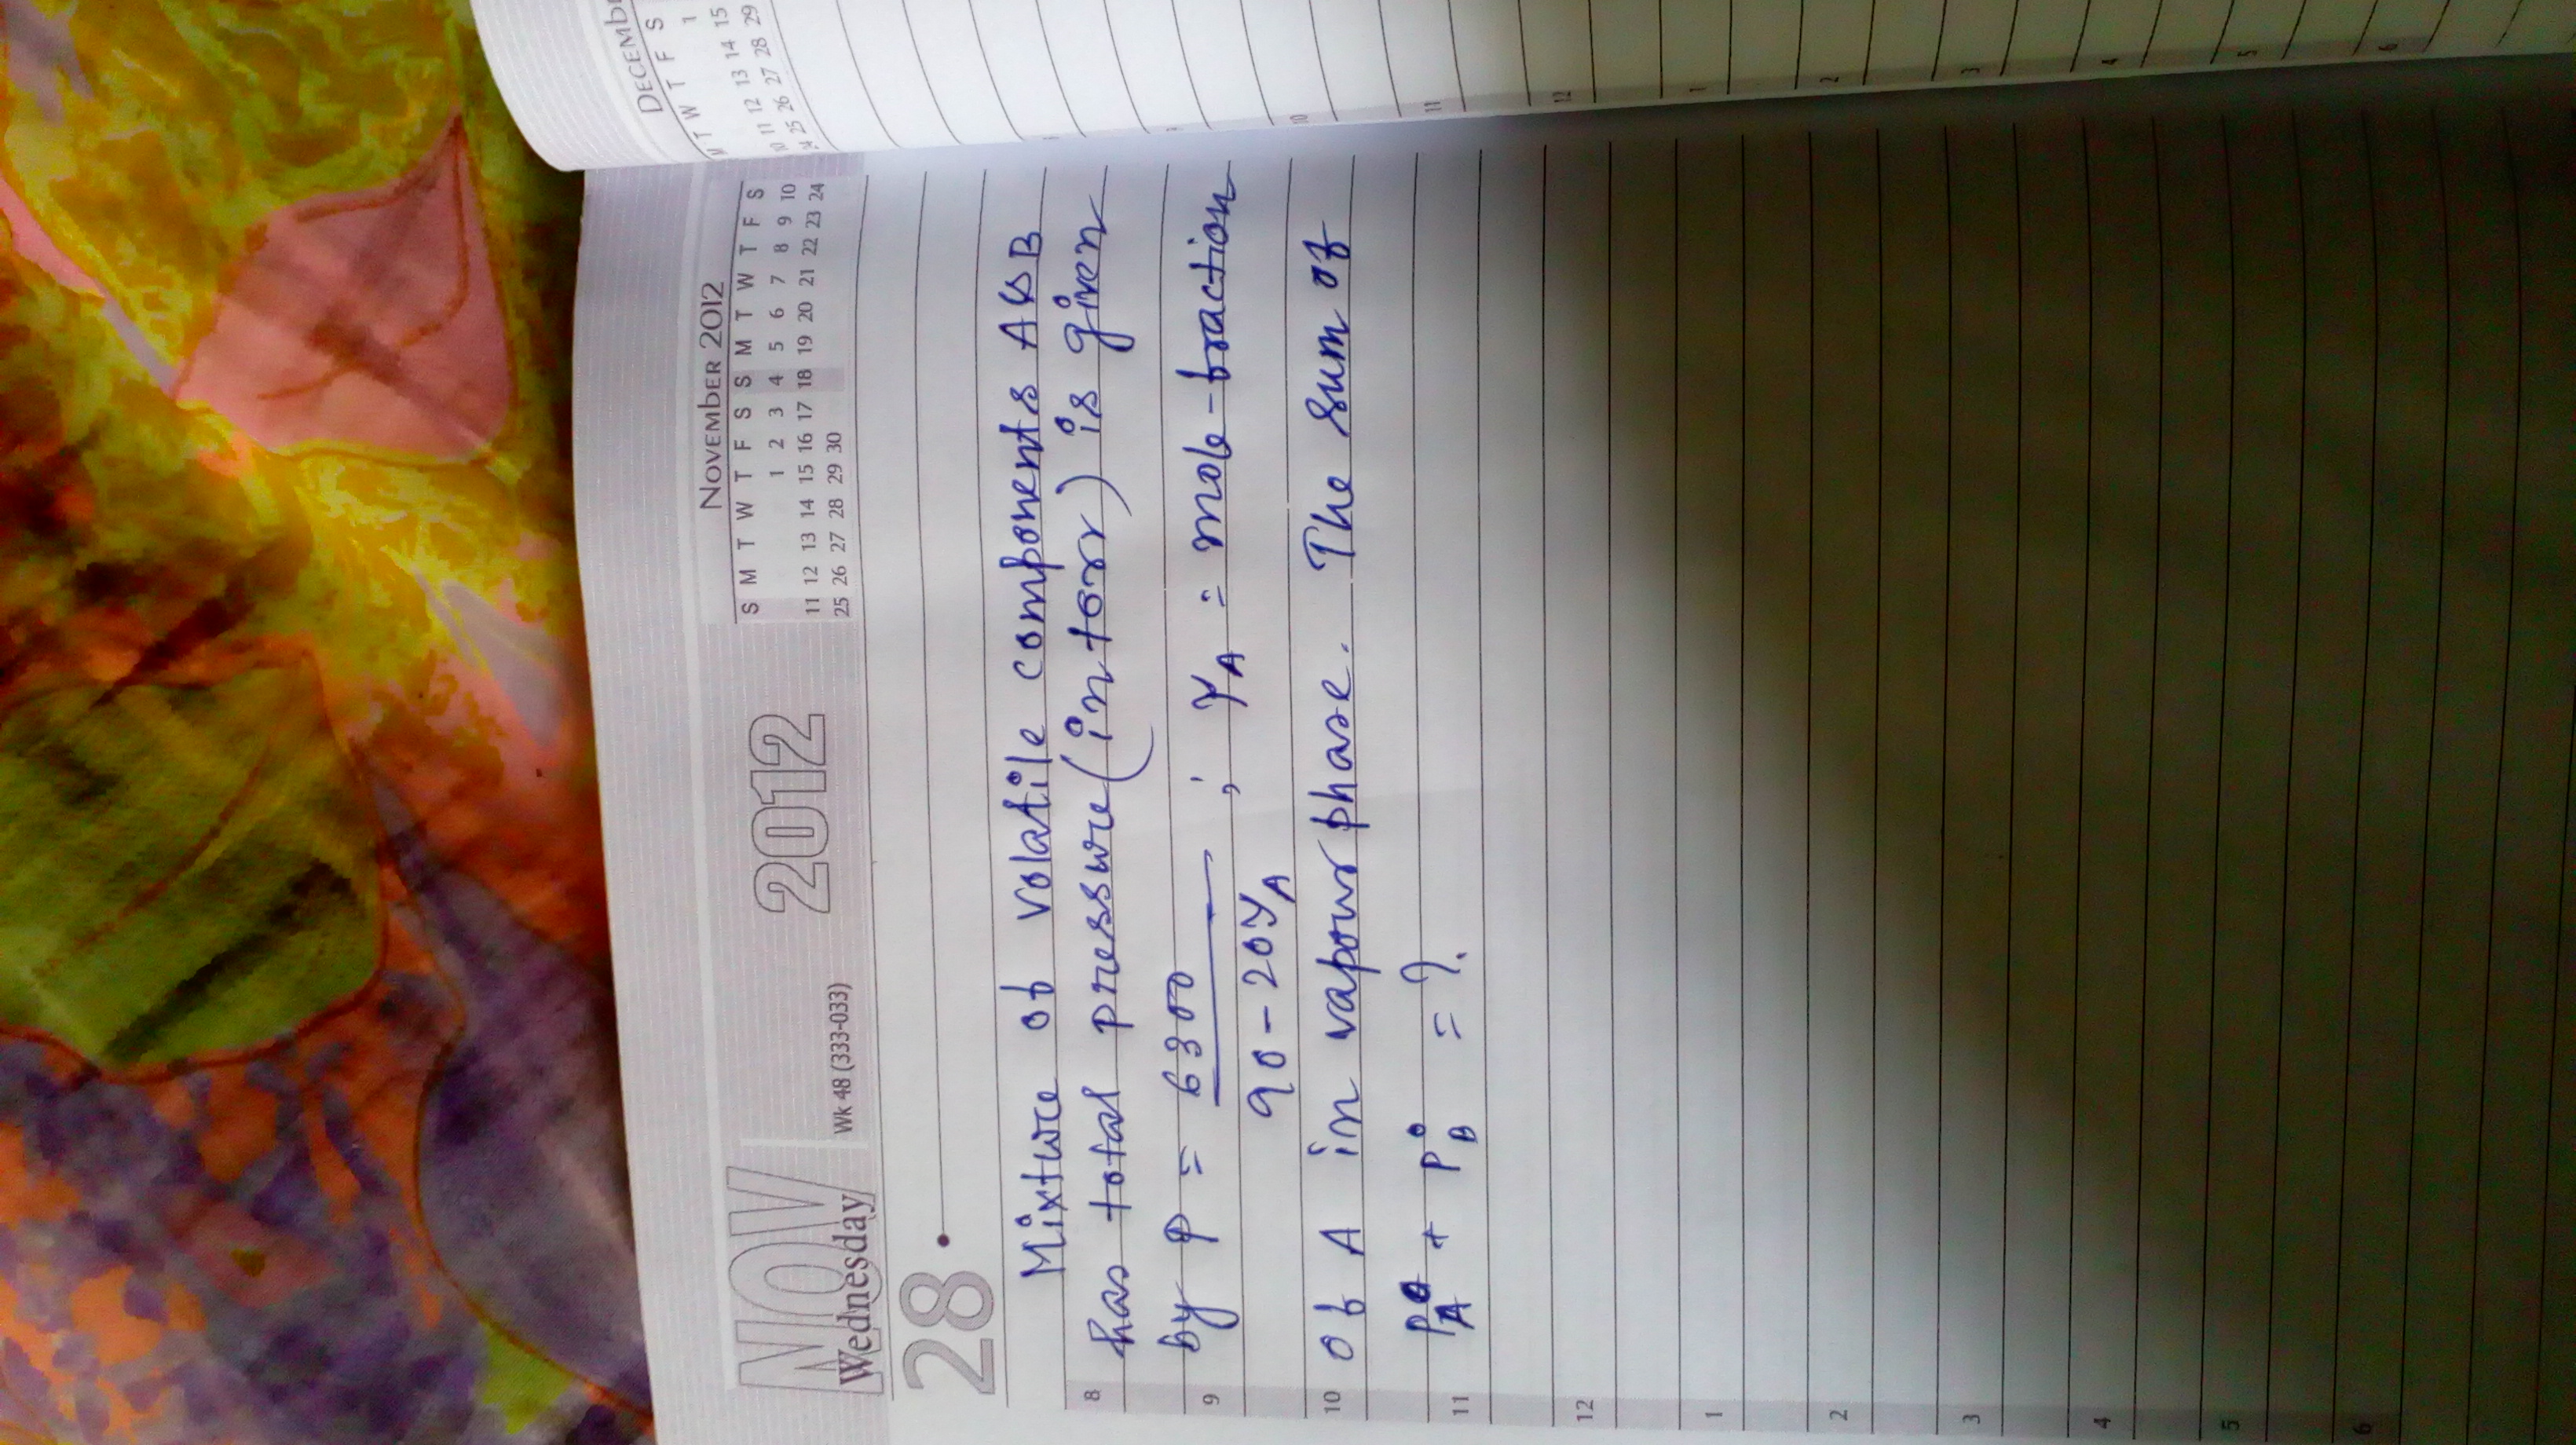 DECEMBE
M T W T F S
1
10 11 12 13 14 15
24 25 26 27 28 29
NOV
Wednesday
Wk 48 (333-033)
2012
NOVEMBER 2012
S M T W T F S S M T W T F S
1 2 3 4 5 6 7 8 9 10
11 12 13 14 15 16 17 18 19 20 21 22 23 24
25 26 27 28 29 30
28
Mixture of volatile components A & B
8 has total pressure (in torr) is given
9 by P = 6300 / 90 - 20YA ; YA = mole-fraction
10 of A in vapour phase. The sum of
11 P°A + P°B = ?
12
1
2
3
4
5
6
10
11
12
1
2
3
4
5
6